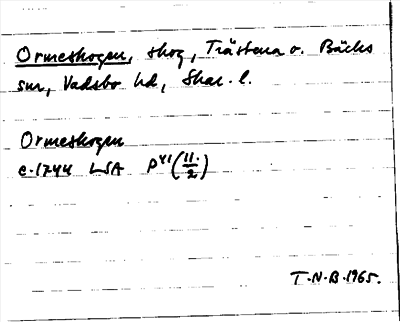 Ormeskogen, skog, Trästena o. Bäcks
snr, Vadsbo hd, Skar. l.
Ormeskogen
c. 1744 LSA P 41 (11/2)
T.N.B. 1965.